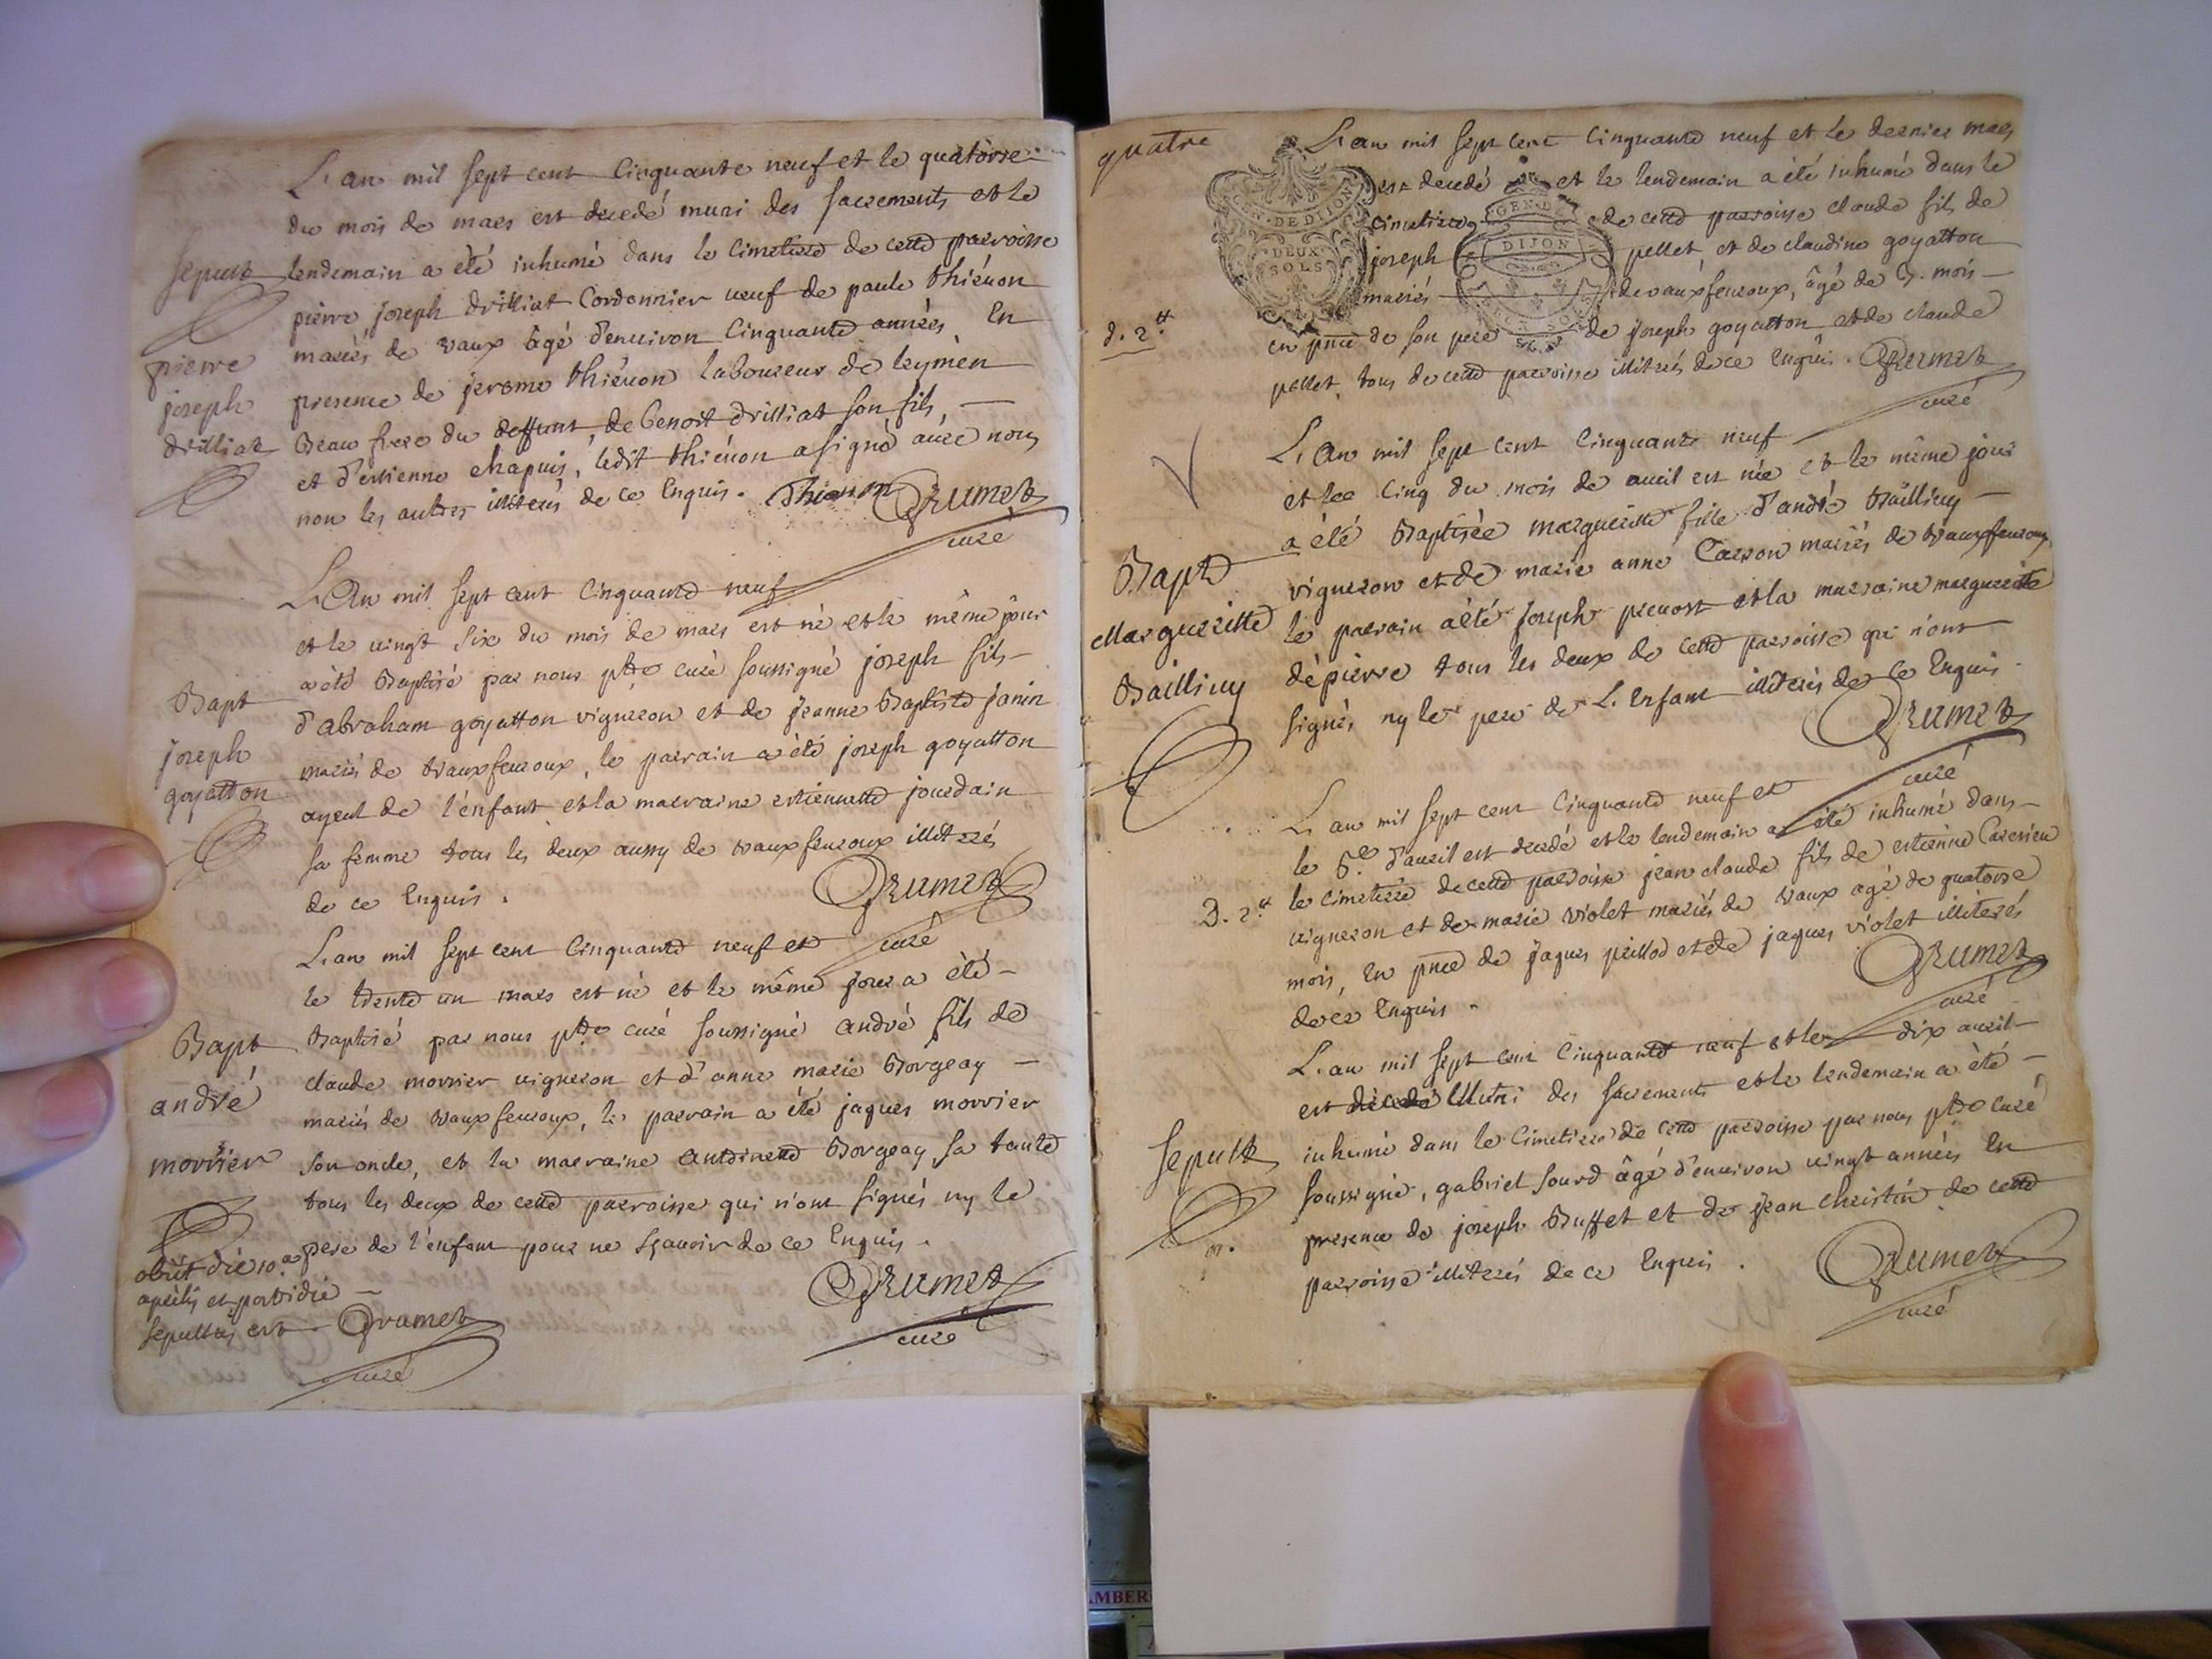 L'an mil sept cent Cinquante neuf et le quatorse
du mois de mars est decedé muni des sacrements et le
lendemain a été inhumé dans le Cimetiere de cette parroisse
pierre joseph drilliat Cordonnier veuf de paule thiénon
mariés de vaux âgé d'environ Cinquante années, En
presence de jerome thiénon laboureur de leymen
Beau frere du deffunt, de benoit drilliat son fils,
et d'estienne chapuis, ledit thiénon a signé avec nous
non les autres illiterés de ce Enquis. Thienon Grumet
curé
Sepult
pierre
joseph
drilliat
L'An mil sept cent Cinquante neuf
et le vingt six du mois de mars est né et le même jour
a été Baptisé par nous ptre curé soussigné joseph fils
d'abraham goyatton vigneron et de jeanne Baptiste janin
mariés de vauxfevroux, le parrain a été joseph goyatton
ayeul de l'enfant et la marraine estiennette jourdain
sa femme tous les deux aussy de vauxfevroux illitrés
de ce Enquis. Grumet
curé
Bapt
joseph
goyatton
L'an mil sept cent Cinquante neuf et
le trente un mars est né et le même jour a été
Baptisé par nous ptre curé soussigné andré fils de
claude morrier vigneron et d'anne marie Borgeay
mariés de vauxfevroux, le parrain a été jaques morrier
son oncle, et la marraine antoinette Borgeay sa tante
tous les deux de cette parroisse qui n'ont signés ny le
pere de l'enfant pour ne sçavoir de ce Enquis.
Grumet
curé
Bapt
andré
morrier
obiit die 10a
aprilis et postridie
sepultus est Grumet
curé
quatre
L'an mil sept cent Cinquante neuf et le dernier mars
est decedé et le lendemain a été inhumé dans le
cimetiere de cette parroisse claude fils de
joseph pellet et de claudine goyatton
mariés de vauxfevroux, âgé de 3. mois
en pnce de son pere de joseph goyatton et de claude
pellet, tous de cette parroisse illitrés de ce Enquis. Grumet
curé
GEN. DE DIJON
DEUX
SOLS
GEN. DE
DIJON
d. 2.tt
L'An mil sept cent Cinquante neuf
et lee Cinq du mois de avril est née et le même jour
a été Baptisée margueritte fille d'andré Bailliuy
vigneron et de marie anne Carron mariés de vauxfevroux,
le parrain a été joseph prevost et la marraine margueritte
dépierre tous les deux de cette parroisse qui n'ont
signés ny le pere de L'Enfant illiterés de ce Enquis.
Grumet
curé
Bapt
Margueritte
Bailliuy
L'an mil sept cent Cinquante neuf et
le 5e d'avril est decedé et le lendemain a été inhumé dans
le cimetiere de cette parroisse jean claude fils de estienne
vigneron et de marie violet mariés de vaux agé de quatorse
mois, En pnce de jaques peillod et de jaques violet illiterés
de ce Enquis. Grumet
curé
D. 2.tt
L'an mil sept cent Cinquante neuf et le dix avril
est décedé Muni des sacrements et le lendemain a été
inhumé dans le Cimetiere de cette parroisse par nous ptre curé
soussigné, gabriel sourd âgé d'environ vingt années En
presence de joseph Buffet et de jean christin de cette
parroisse illitrés de ce Enquis. Grumet
curé
Sepult